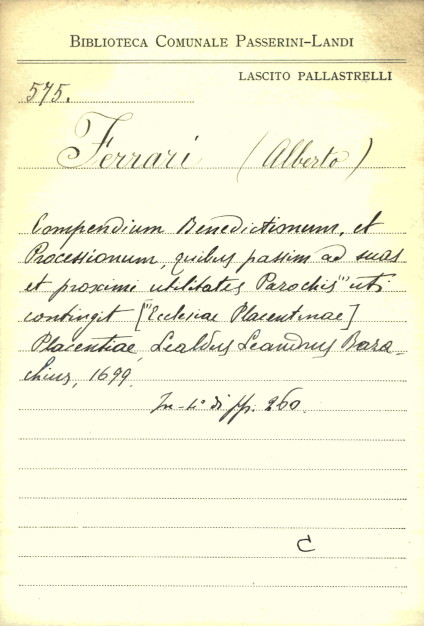 BIBLIOTECA COMUNALE PASSERINI-LANDI
LASCITO PALLASTRELLI
575.
Ferrari (Alberto)
Compendium Benedictionum, et
Processionum, quibus passim ad suas
et proximi utilitates Parochis "uti
contingit ["Ecclesiae Placentinae]
Placentiae, Lealdus Leandrus Baza-
chius, 1699.
In-4° di pp. 260.
C